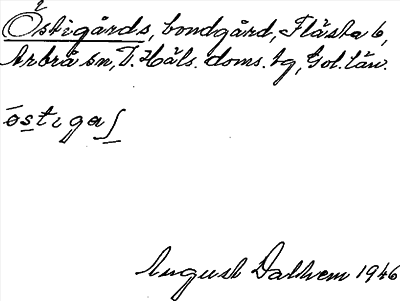 Östigårds, bondgård, Flästa 6,
Arbrå sn, V. Häls. doms. tg, Gbl. län.
östigaʃ
August Dalhem 1946